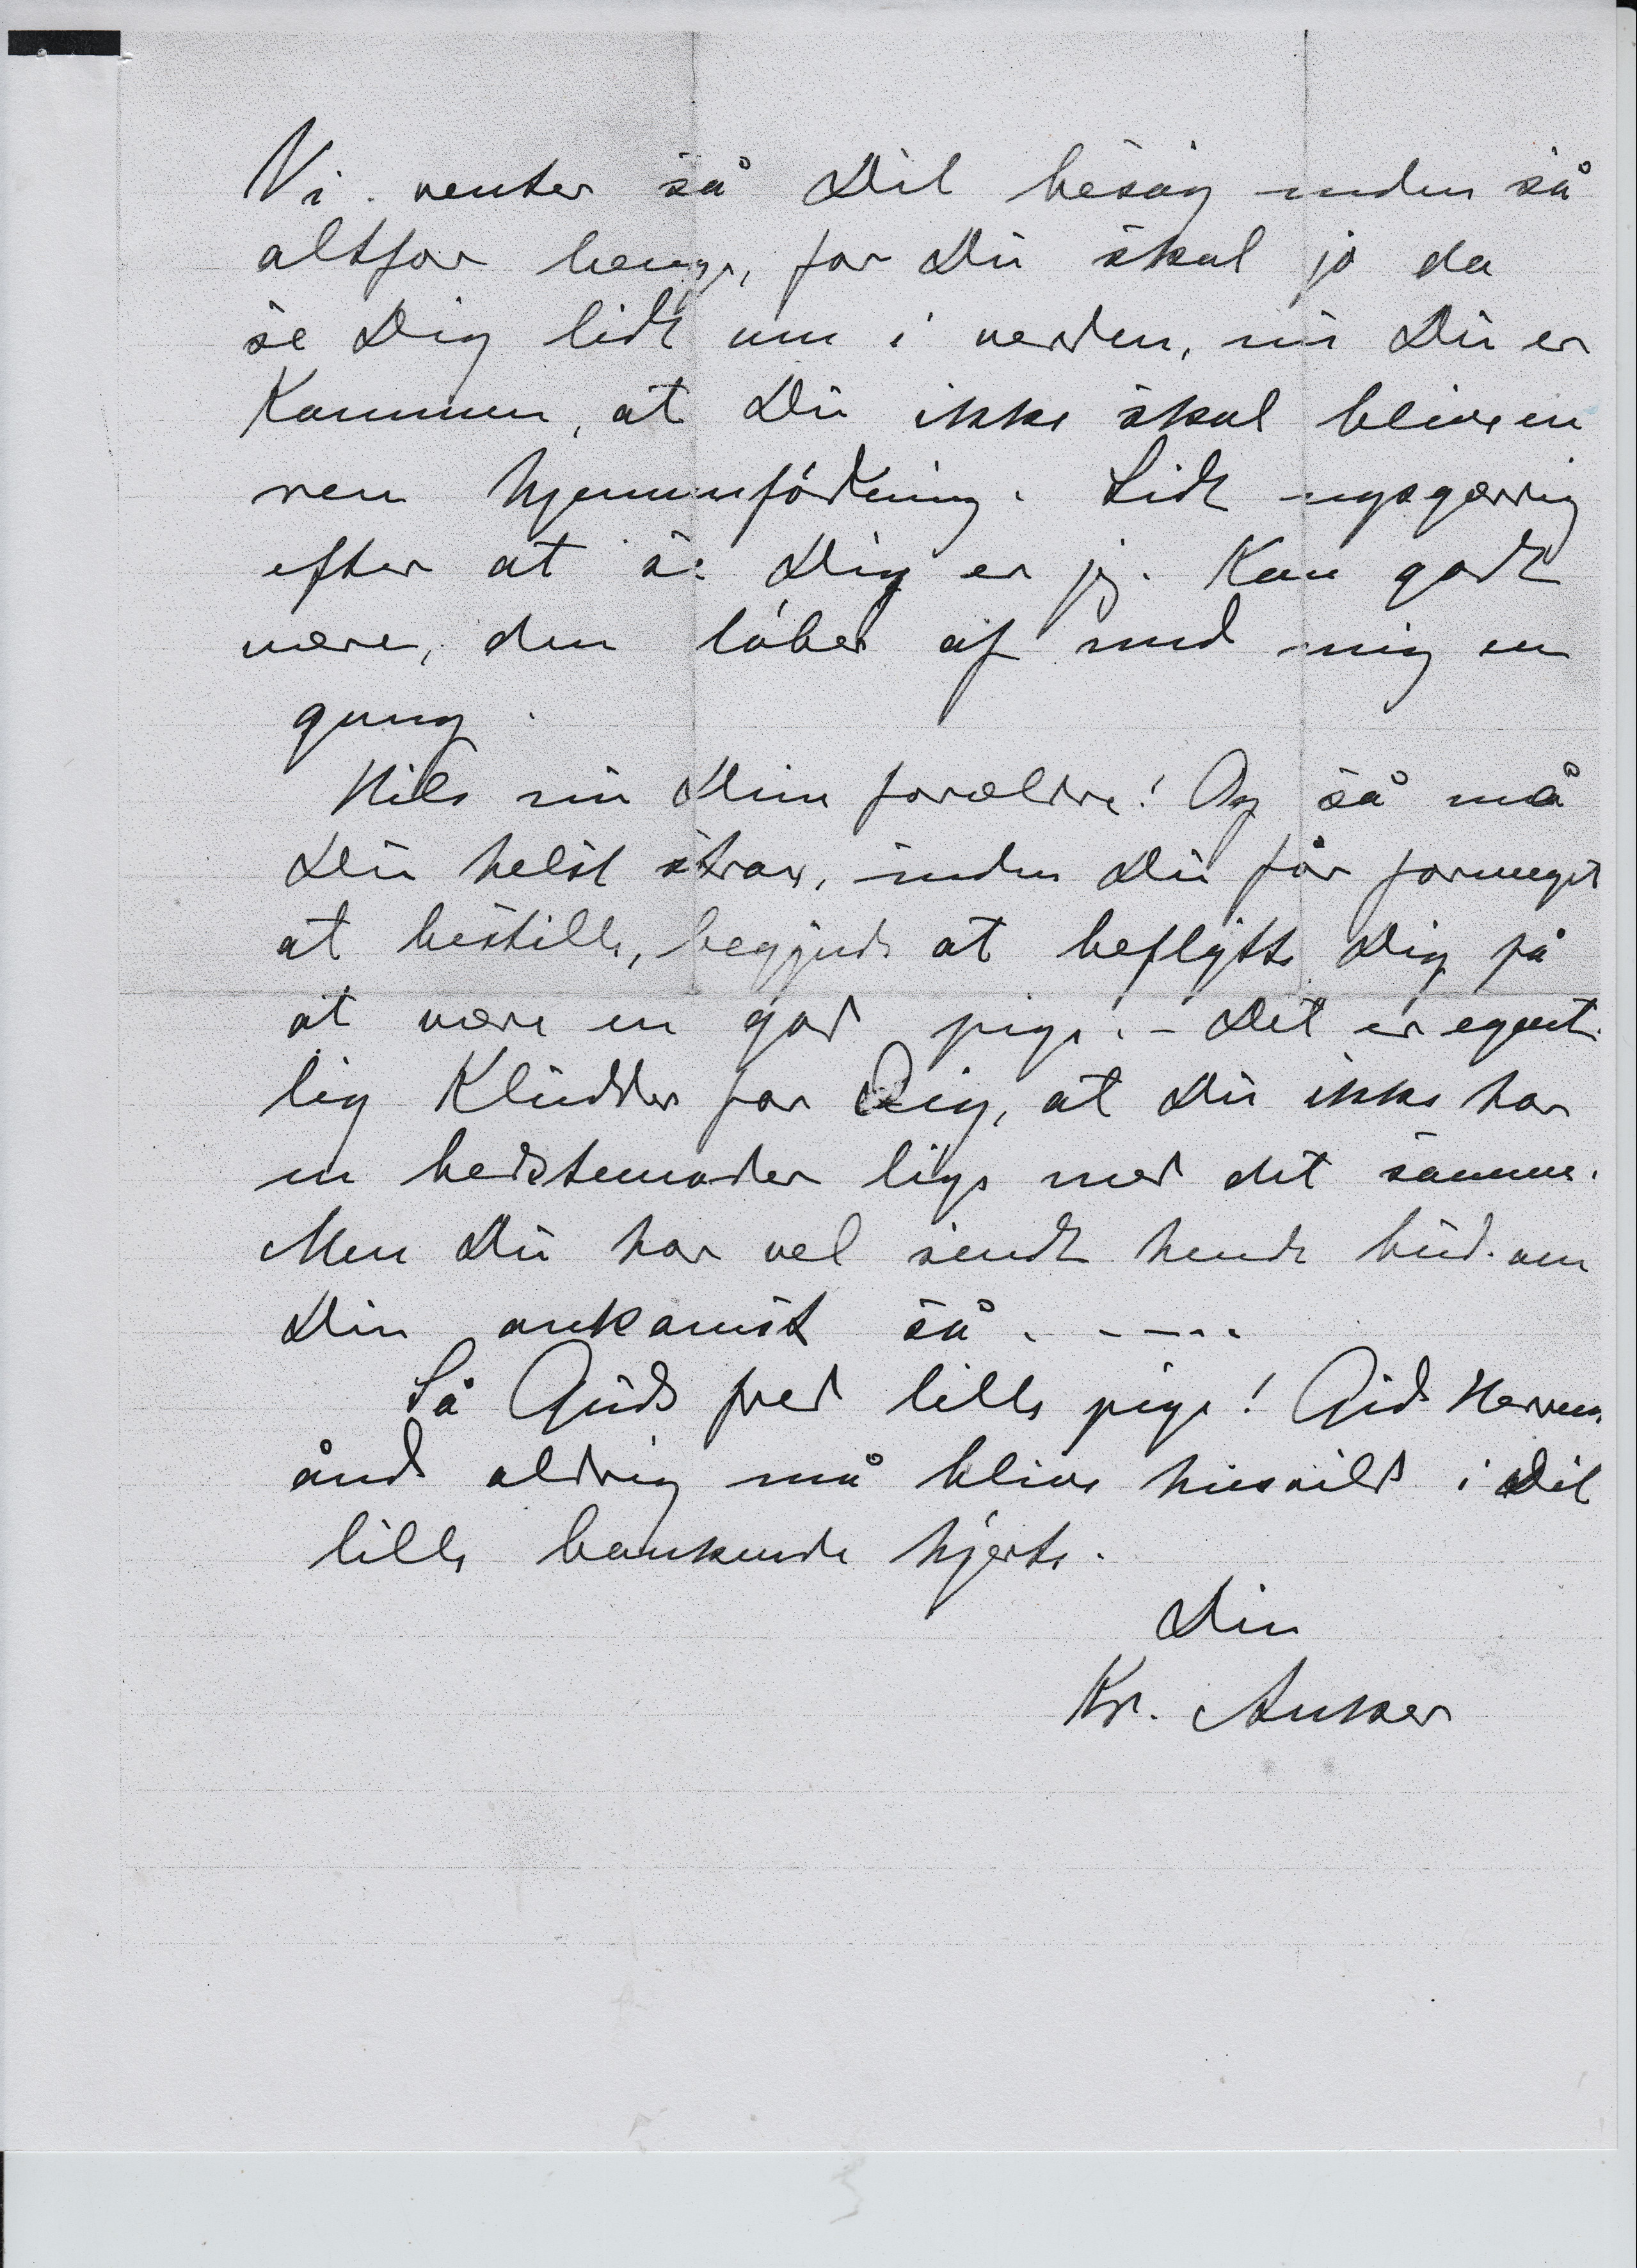 Vi venter så Dit besøg inden så
altfor længe, for Du skal jo da
se Dig lidt om i verden, nu Du er
Kommen, at Du ikke skal blive en
ren hjemmefødning. Lidt nysgerrig
efter at se Dig er jeg. Kan godt
være, den løber af med mig en
gang.
Hils nu Dine forældre! Og så må
Du helst strax, inden Du får formeget
at bestille, begynde at beflytte Dig på
at være en god pige. – Det er egent-
lig Kludder for Dig, at Du ikke har
en bedstemoder lige ved det samme.
Men Du har vel sendt hende bud om
Din ankomst så. - - - -
Så Guds fred lille pige! Gid Herrens
ånd aldrig må blive husvild i Dit
lille bankende hjerte.
Din
Kr. Anker
3